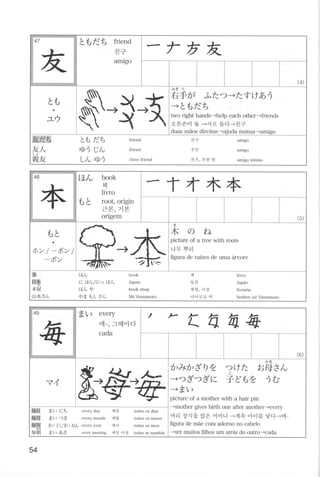 47
友
ともだち friend
친구
amigo
一 ナ 方 友
(4)
とも
・
ユウ
みぎ て
右手が ふたつ→たすけあう
→ともだち
two right hands→help each other→friends
duas mãos direitas→ajuda mútua→amigo
友だち ともだち friend 친구 amigo
友人 ゆうじん friend 우인 amigo
親友 しんゆう close friend amigo íntimo
48
本
ほん book
책
livro
もと root, origin
근본, 기본
origem
一 十 才 木 本
(5)
もと
・
ホン/−ボン/
−ポン
木 の ね
picture of a tree with roots
나무 뿌리
figura de raízes de uma árvore
本 ほん book 책 livro
日本 にほん/にっぽん Japan 일본 Japão
本屋 ほんや book shop 책방, 서점 livraria
山本さん やまもとさん Mr.Yamamoto Senhor (a) Yamamoto
49
毎
まい every
매-, 그때마다
cada
(6)
マイ
かみかざりを つけた お母さん
→つぎつぎに 子どもを うむ
→まい
picture of a mother with a hair pin
→mother gives birth one after another→every
figura de mãe com adorno no cabelo
→ter muitos filhos um atrás do outro→cada
毎日 まいにち every day 매일 todos os dias
毎月 まいつき every month 매월 todos os meses
毎年 まいとし/まいねん every year 매년 todos os anos
毎朝 まいあさ every morning 매일 아침 todas as manhãs
54